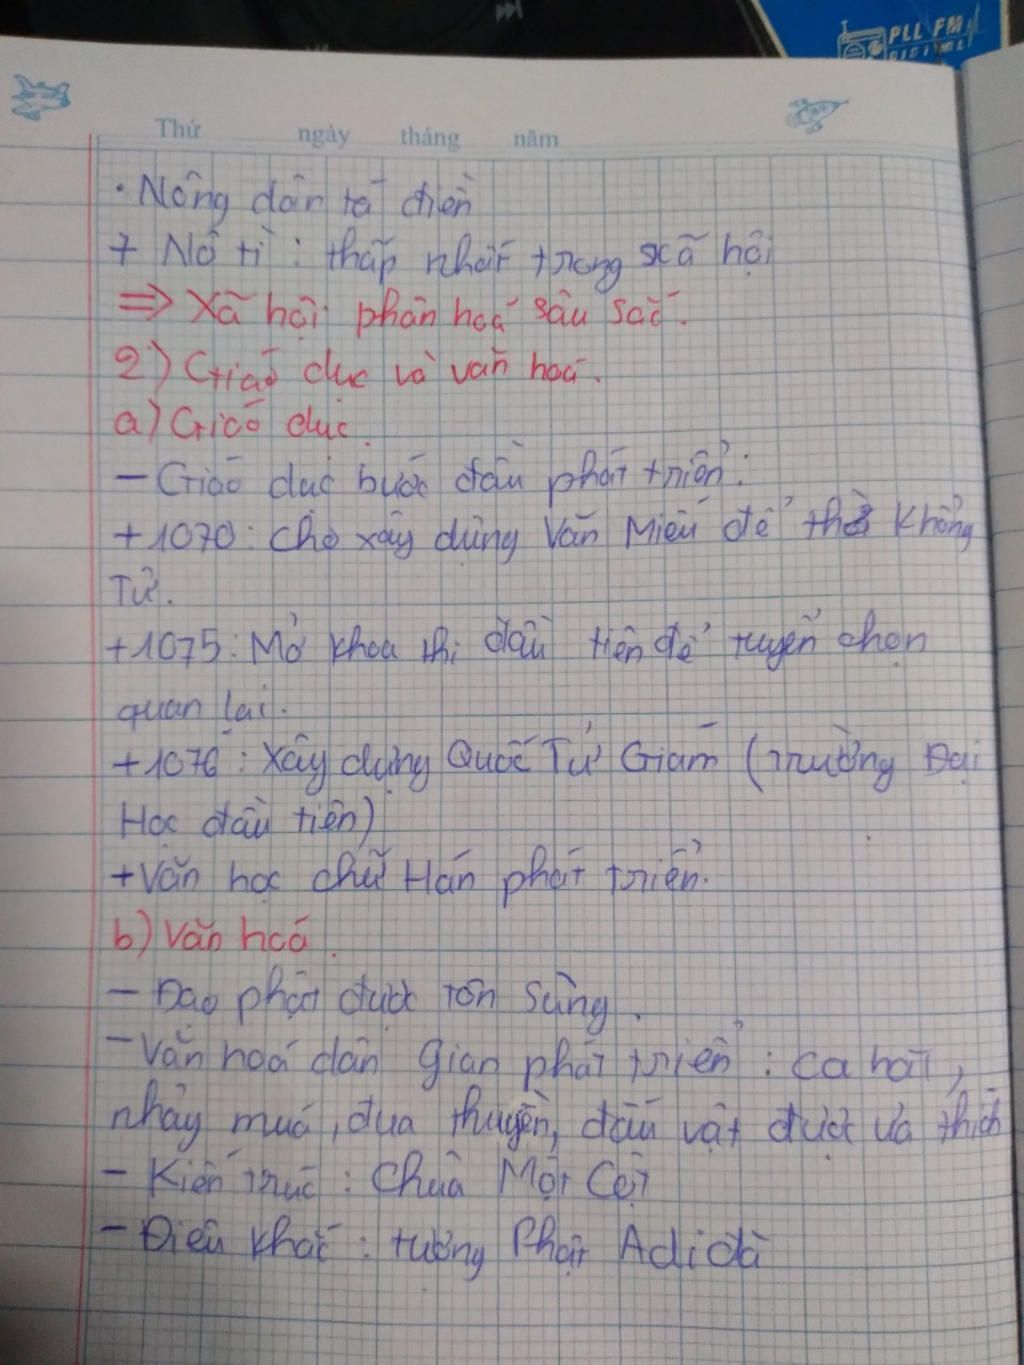 PLL FM
DIGITAL
Thứ ngày tháng năm
. Nông dân tá điền
+ Nô tì : thấp nhất trong xã hội
=> Xã hội phân hoá sâu sắc.
2) Giáo dục và văn hoá.
a) Giáo dục.
- Giáo dục bước đầu phát triển:
+ 1070: cho xây dựng Văn Miếu để thờ Khổng
Tử.
+ 1075: Mở khoa thi đầu tiên để tuyển chọn
quan lại.
+ 1076: Xây dựng Quốc Tử Giám (Trường Đại
Học đầu tiên)
+ Văn học chữ Hán phát triển.
b) Văn hoá.
- Đạo phật được tôn sùng.
- Văn hoá dân gian phát triển : ca hát,
nhảy múa, đua thuyền, đấu vật được ưa thích
- Kiến trúc : Chùa Một Cột
- Điêu khắc : tượng Phật Adiđà